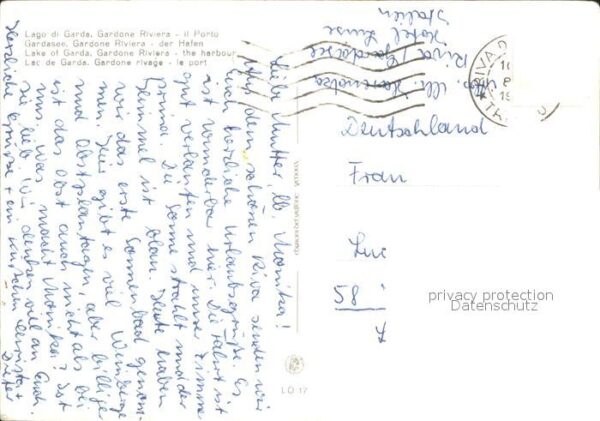 Lago di Garda. Gardone Riviera - il Porto
Gardasee. Gardone Riviera - der Hafen
Lake of Garda. Gardone Riviera - the harbour
Lac de Garda. Gardone rivage - le port
Liebe Mutter, lb. Monika!
Aus dem schönen Riva senden wir
Euch herzliche Urlaubsgrüße. Es
ist wunderbar hier. Die Fahrt ist
gut verlaufen und unser Zimmer
prima. Die Sonne strahlt und der
Himmel ist blau. Heute haben
wir das erste Sonnenbad genom-
men. Hier gibt es viel Weinberge
und Obstplantagen, aber billiger
ist das Obst auch nicht als bei
uns. Was macht Monika? Ist
sie lieb. Wir denken viel an Euch.
Herzliche Grüße + ein
Dieter
Riva Gardasee
Hotel Luise
Italien
RIVA D
Deutschland
Frau
58
privacy protection
Datenschutz
LO 17